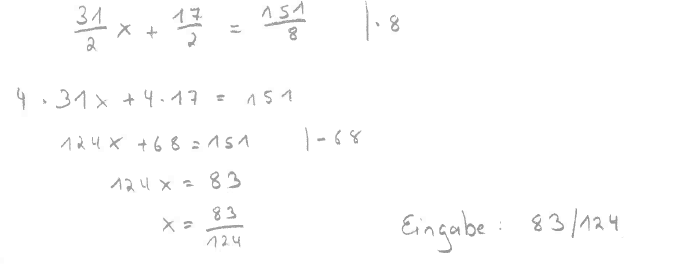 31/2 x + 17/2 = 151/8 | · 8
4 · 31x + 4 · 17 = 151
124x + 68 = 151 | - 68
124x = 83
x = 83/124
Eingabe: 83/124